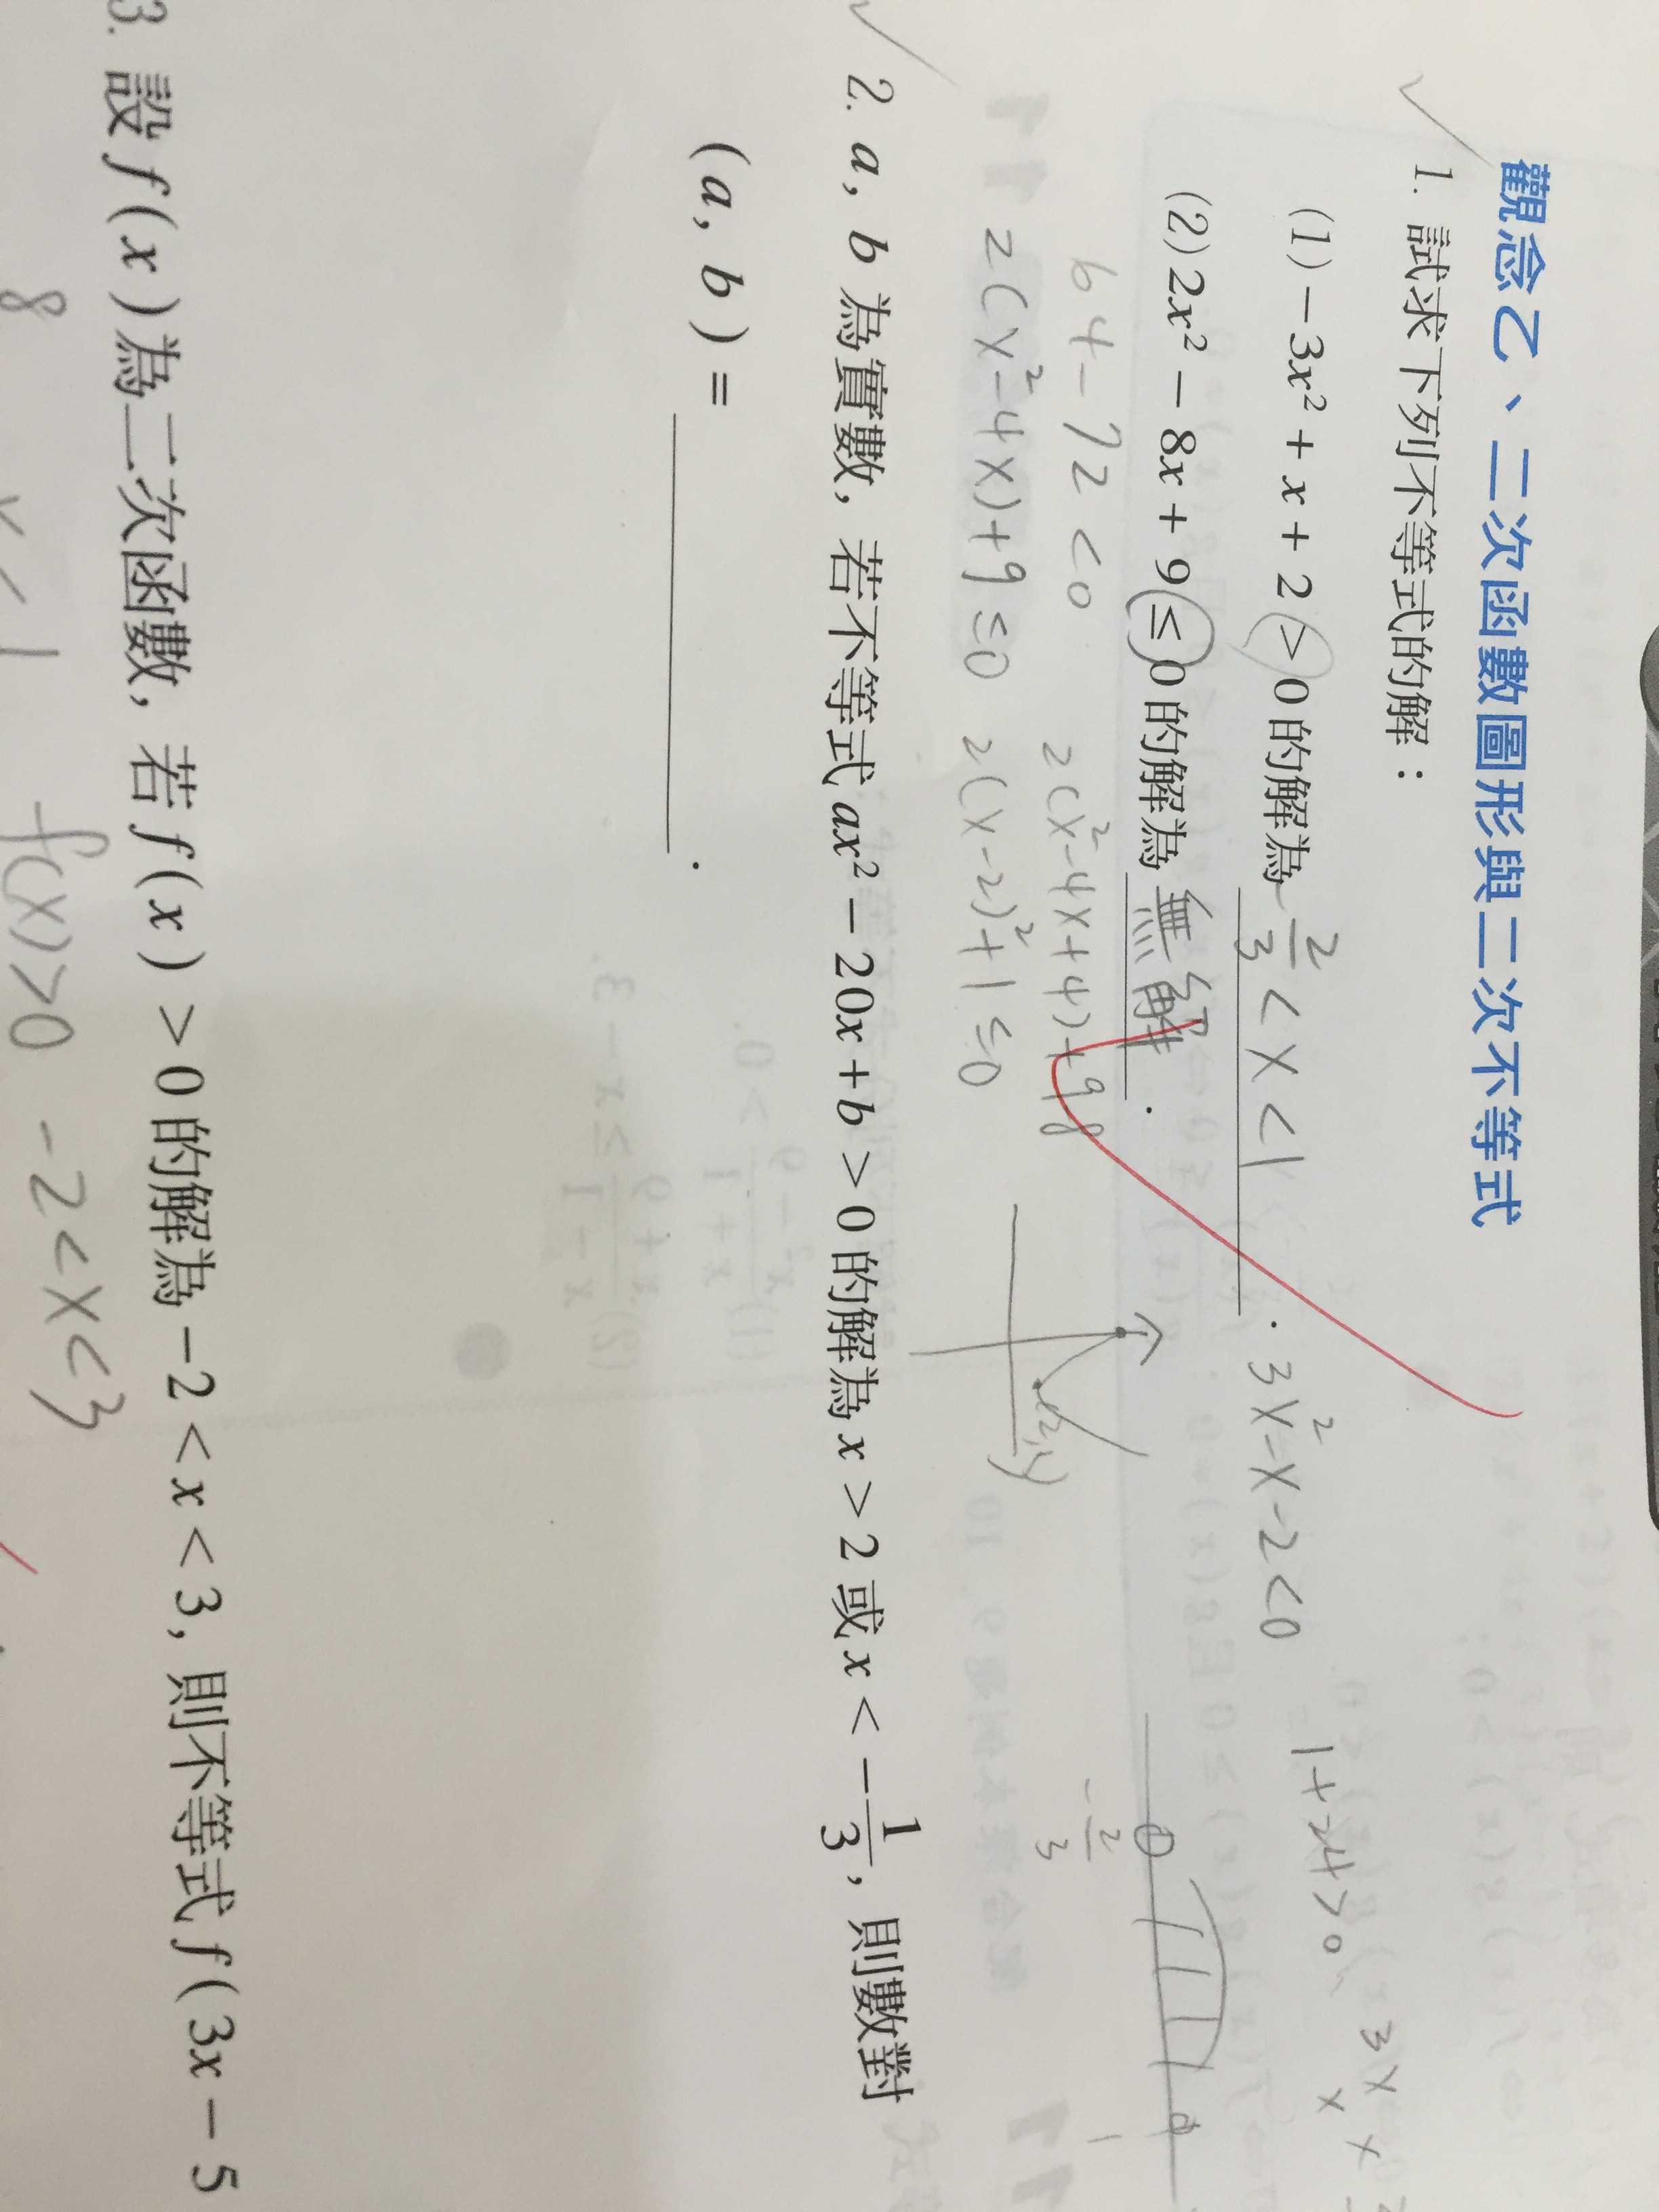 觀念乙、二次函數圖形與二次不等式
1. 試求下列不等式的解：
(1) −3x² + x + 2 > 0 的解為 -2/3 < x < 1 . 3x²-x-2<0 1+24>0
3x
x
(2) 2x² − 8x + 9 ≤ 0 的解為 無解 .
64-72<0 2(x²-4x+4)+9-8 -2/3 1
2(x²-4x)+9≤0 2(x-2)²+1≤0
2. a, b 為實數, 若不等式 ax² − 20x + b > 0 的解為 x > 2 或 x < −1/3, 則數對
(a, b) = .
3. 設 f(x) 為二次函數, 若 f(x) > 0 的解為 −2 < x < 3, 則不等式 f(3x − 5
f(x)>0 -2<x<3